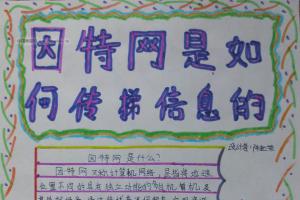 因特网是如
何传递信息的
因特网是什么?
因特网又称计算机网络,是指将地理
位置不同的具有独立功能的多台计算机及